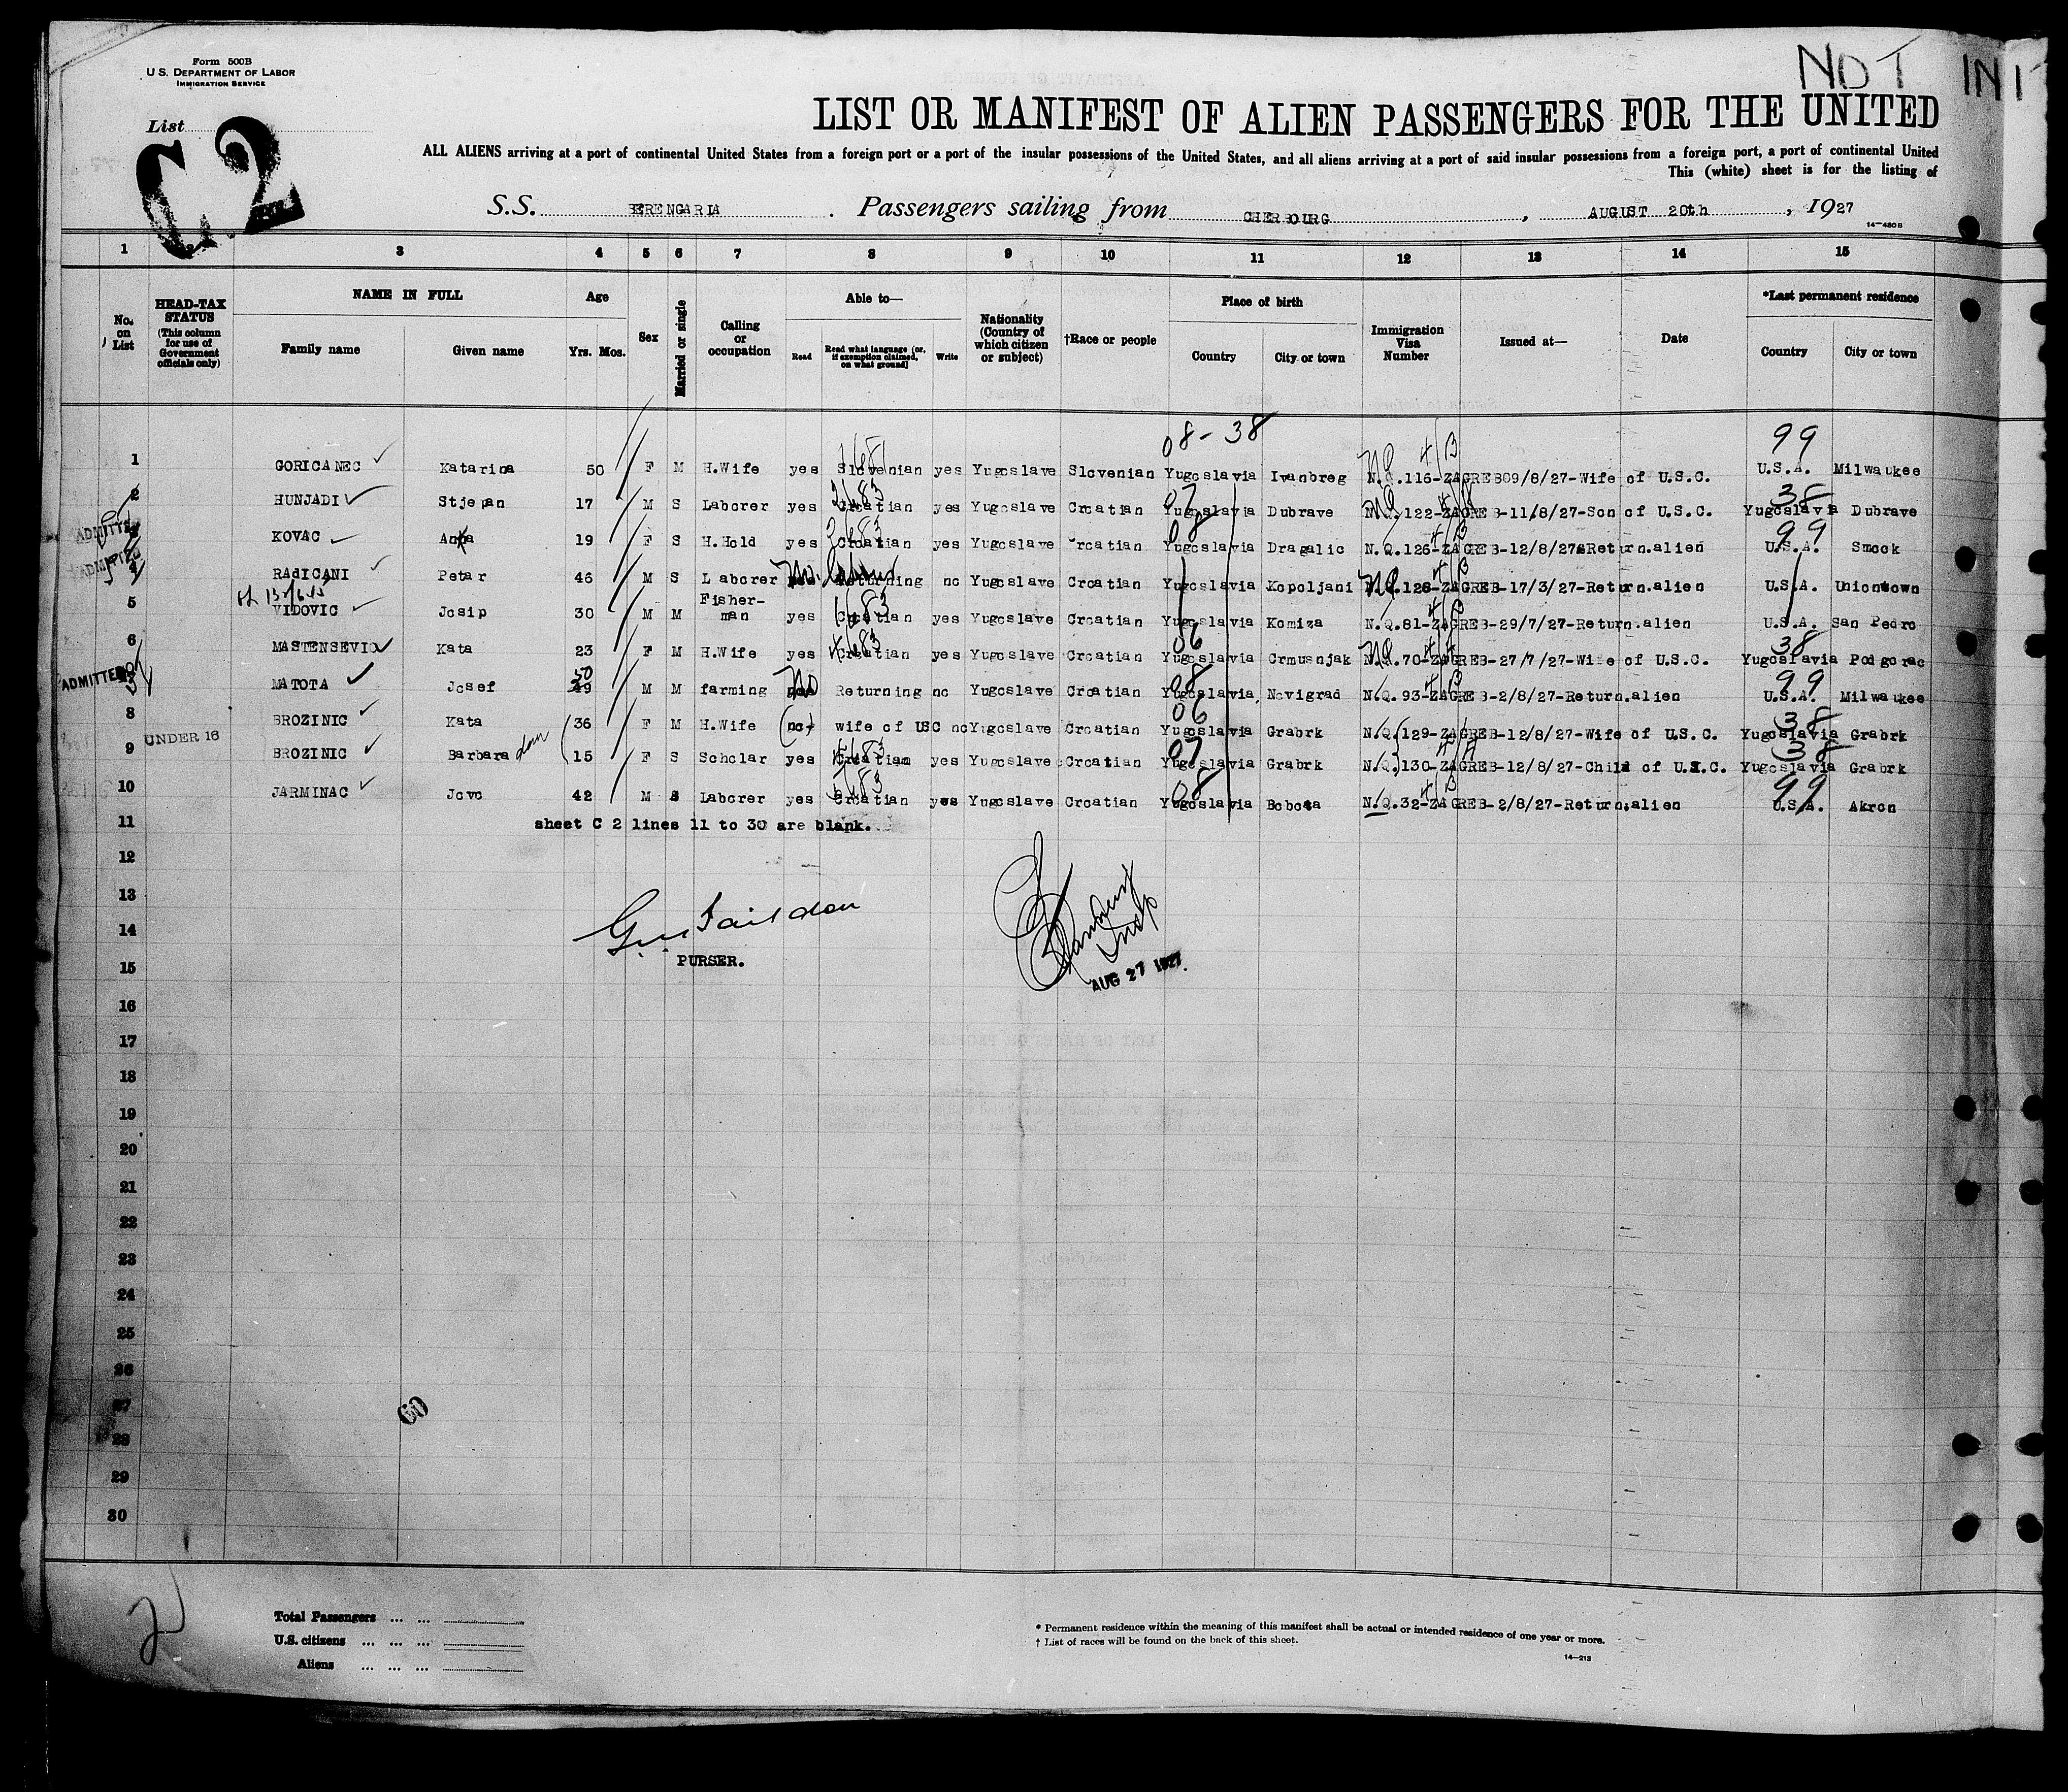 Form 500B
U.S. DEPARTMENT OF LABOR
IMMIGRATION SERVICE
NOT IN
List
C 2
LIST OR MANIFEST OF ALIEN PASSENGERS FOR THE UNITED
ALL ALIENS arriving at a port of continental United States from a foreign port or a port of the insular possessions of the United States, and all aliens arriving at a port of said insular possessions from a foreign port, a port of continental United
This (white) sheet is for the listing of
S.S. BERENGARIA . Passengers sailing from CHERBOURG , AUGUST 20th , 1927
14—480B
1 2 3 4 5 6 7 8 9 10 11 12 13 14 15
No. on List
HEAD-TAX STATUS (This column for use of Government officials only)
NAME IN FULL
Family name Given name
Age
Yrs. Mos.
Sex
Married or single
Calling or occupation
Able to—
Read
Read what language (or, if exemption claimed, on what ground)
Write
Nationality (Country of which citizen or subject)
†Race or people
Place of birth
Country City or town
Immigration Visa Number
Issued at—
Date
*Last permanent residence
Country City or town
08-38 99
1 GORICANEC Katarina 50 F M H.Wife yes Slovenian yes Yugoslave Slovenian Yugoslavia Ivanbreg N.Q.116-ZAGREB09/8/27-Wife of U.S.C. U.S.A. Milwaukee
2 HUNJADI Stjepan 17 M S Laborer yes Croatian yes Yugoslave Croatian 07 Yugoslavia Dubrave N.Q.122-ZAGREB-11/8/27-Son of U.S.C. 38 Yugoslavia Dubrave
ADMITTED
KOVAC Anna 19 F S H.Hold yes Croatian yes Yugoslave Croatian 08 Yugoslavia Dragalic N.Q.126-ZAGREB-12/8/27-Return.alien 99 U.S.A. Smock
ADMITTED
4 RADICANI Petar 46 M S Laborer No. Returning no Yugoslave Croatian Yugoslavia Kopoljani N.Q.128-ZAGREB-17/3/27-Return.alien U.S.A. Uniontown
5 VIDOVIC Josip 30 M M Fisher-man yes Croatian yes Yugoslave Croatian Yugoslavia Komiza N.Q.81-ZAGREB-29/7/27-Return.alien U.S.A. San Pedro
6 MASTENSEVIC Kata 23 F M H.Wife yes Croatian yes Yugoslave Croatian 06 Yugoslavia Crmusnjak N.Q.70-ZAGREB-27/7/27-Wife of U.S.C. 38 Yugoslavia Podgorac
ADMITTED
MATOTA Josef 50 M M farming No Returning no Yugoslave Croatian 08 Yugoslavia Novigrad N.Q.93-ZAGREB-2/8/27-Return.alien 99 U.S.A. Milwaukee
8 BROZINIC Kata 36 F M H.Wife (no) wife of USC no Yugoslave Croatian 06 Yugoslavia Grabrk N.Q.129-ZAGREB-12/8/27-Wife of U.S.C. 38 Yugoslavia Grabrk
UNDER 16
9 BROZINIC Barbara dau 15 F S Scholar yes Croatian yes Yugoslave Croatian 07 Yugoslavia Grabrk N.Q.130-ZAGREB-12/8/27-Child of U.S.C. 38 Yugoslavia Grabrk
10 JARMINAC Jovo 42 M S Laborer yes Croatian yes Yugoslave Croatian 08 Yugoslavia Bobota N.Q.32-ZAGREB-2/8/27-Return.alien 99 U.S.A. Akron
11 sheet C 2 lines 11 to 30 are blank.
12
13
14
15 PURSER.
Insp
AUG 27 1927.
16
17
18
19
20
21
22
23
24
25
26
27
60
28
29
30
2
Total Passengers ... ...
U.S. citizens ... ... ...
Aliens ... ... ...
* Permanent residence within the meaning of this manifest shall be actual or intended residence of one year or more.
† List of races will be found on the back of this sheet.
14—213